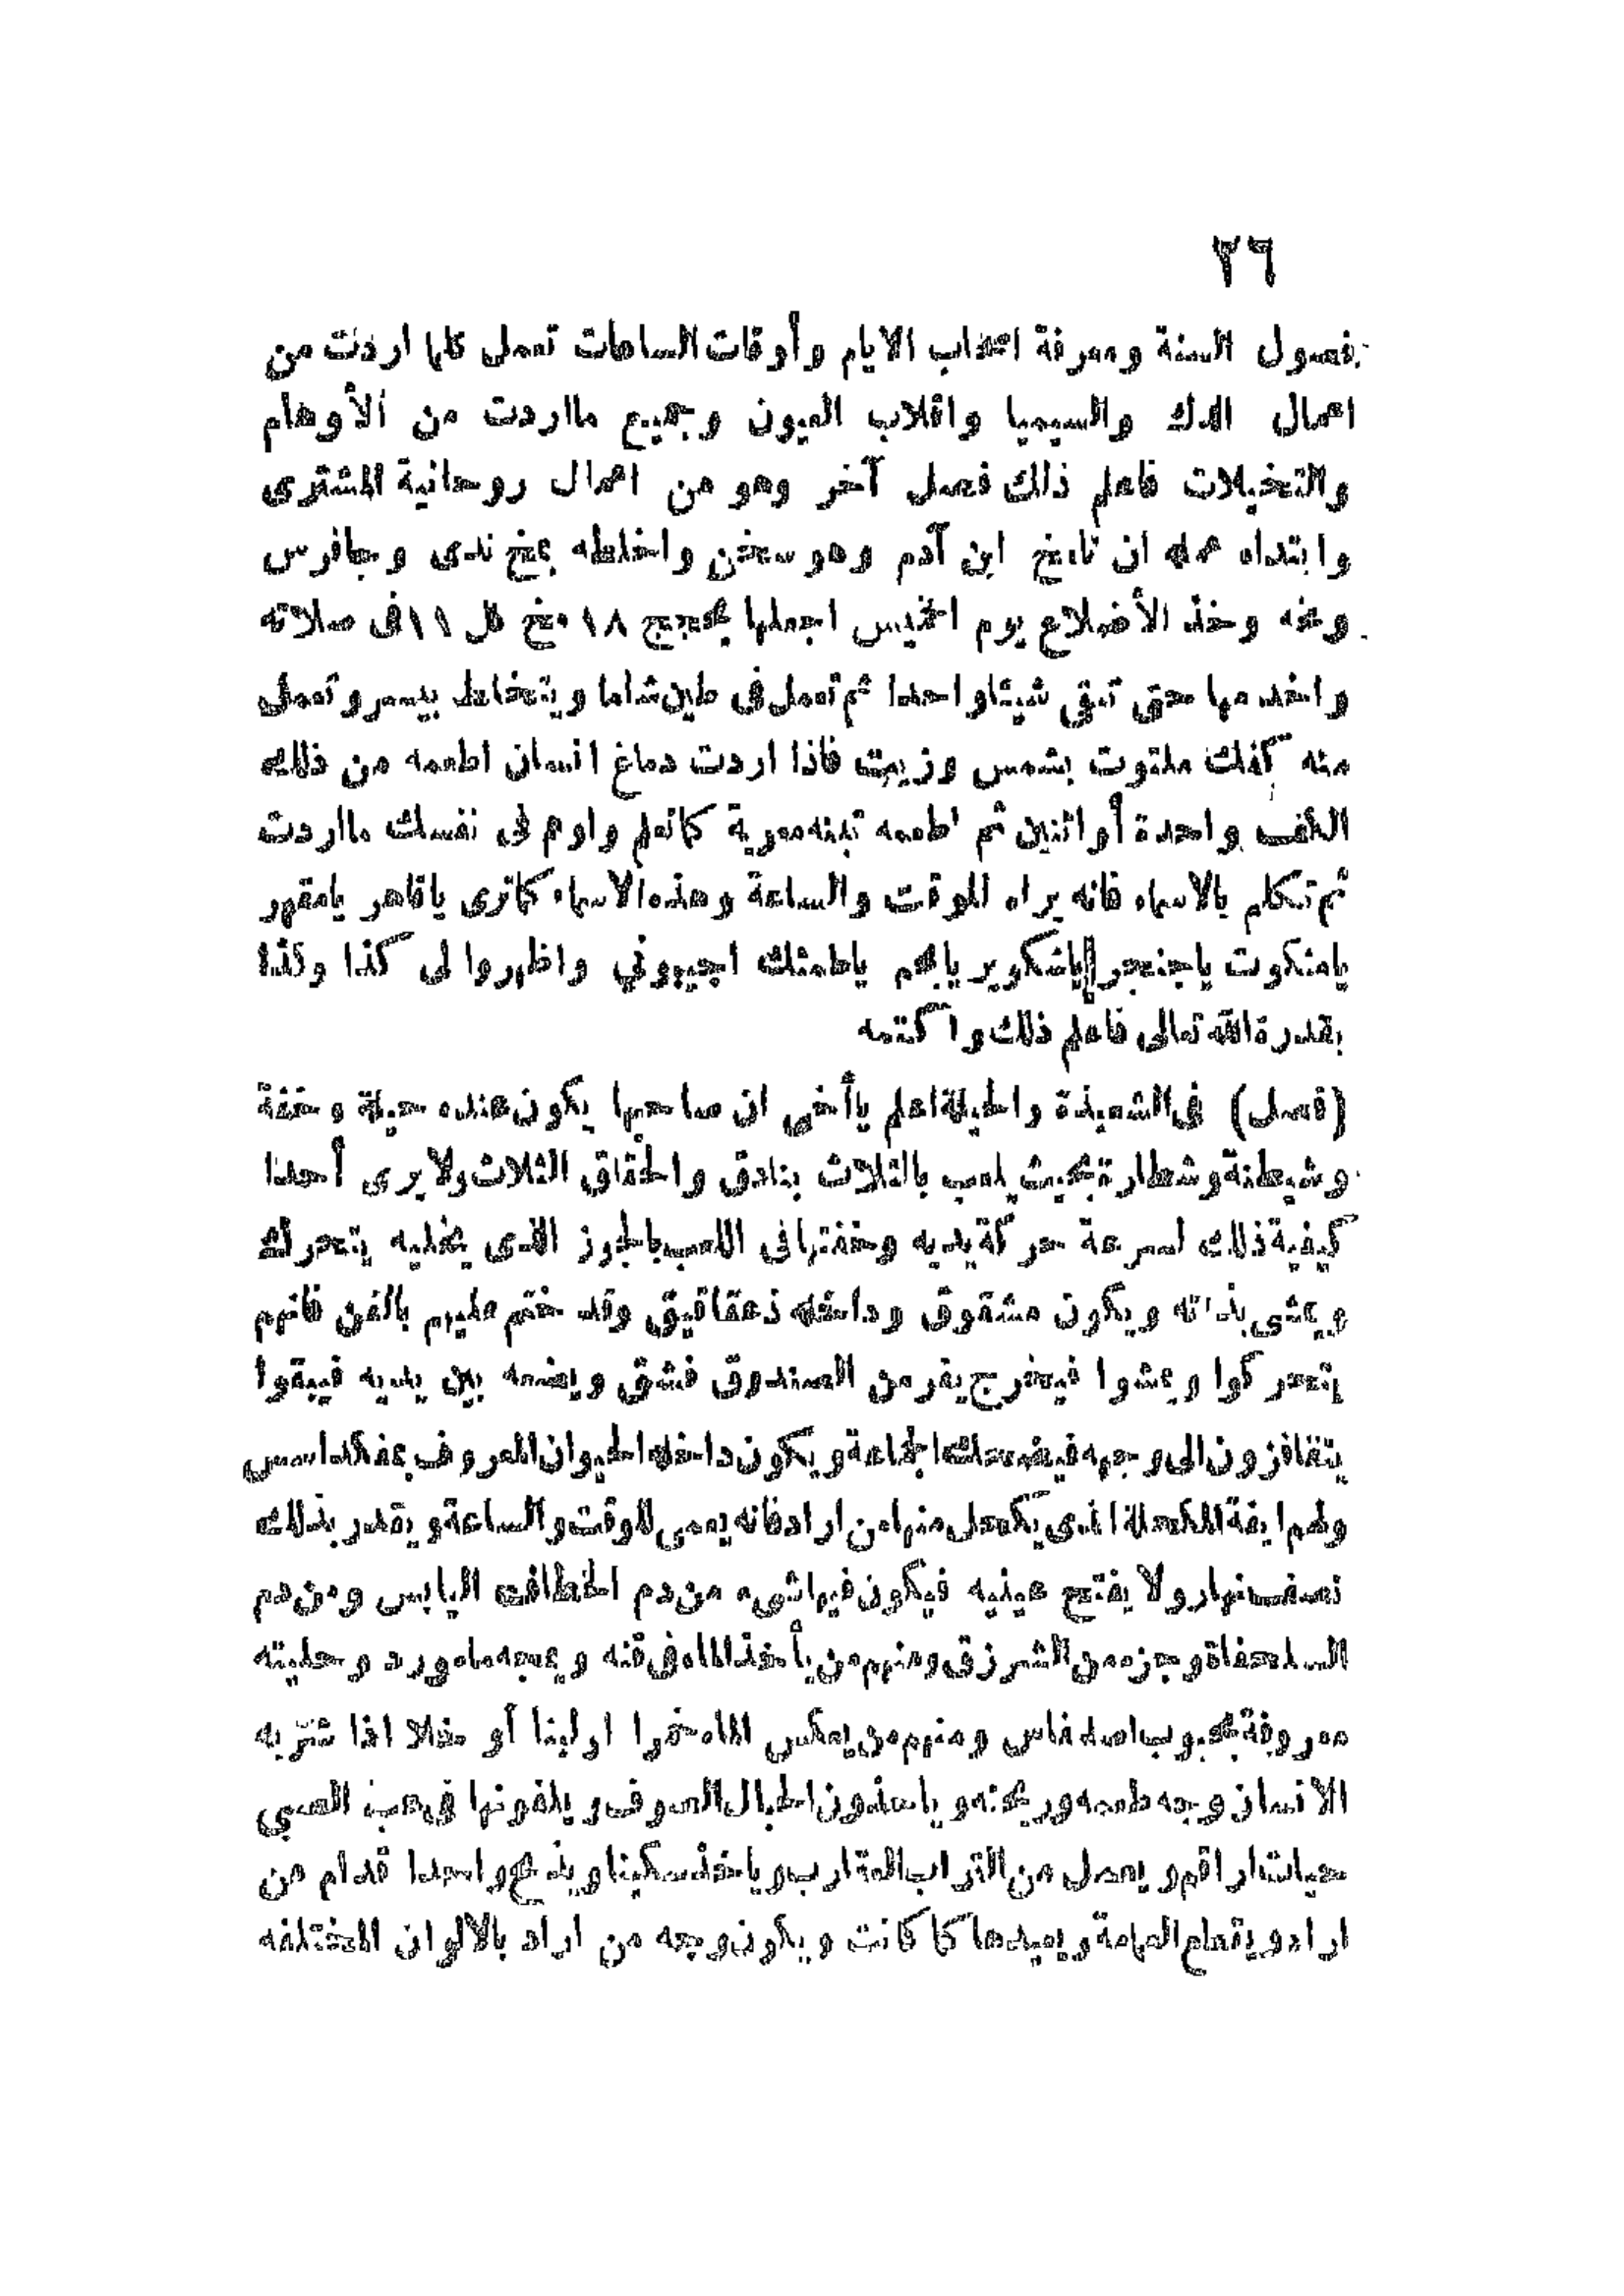 ٢٦
فصول السنة ومعرفة اصحاب الايام وأوقات الساعات تعمل كلما اردت من
اعمال الدك والسيميا واقلاب العيون وجميع مااردت من الأوهام
والتخيلات فاعلم ذلك فصل آخر وهو من اعمال روحانية المشترى
وابتداء عمله ان تاخ ابن آدم وهو سخن واخلطه بمخ ندى
ومخه وخذ الأضلاع يوم الخميس اجعلها ١٨ مخ ١١ فى صلاته
واخدمها حتى تبقى شيئا واحدا ثم تعمل فى طين شاما ويتخلط بيسر وتعمل
منه كذلك ملتوت بشمس وزيت فاذا اردت دماغ انسان اطعمه من ذلك
الكف واحدة أو اثنين ثم اطعمه كاتعلم واوم فى نفسك مااردت
ثم تكلم بالاسماء فانه يراه للوقت والساعة وهذه الاسماء كماترى ياقاهر يامقهر
يامنكوت ياشكوير اجيبونى واظهروا لى كذا وكذا
بقدرة الله تعالى فاعلم ذلك واكتمه
(فصل) فى الشعبذة والحيلة اعلم ياأخى ان صاحبها يكون عنده حيلة وخفة
وشيطنة وشطارة بحيث يلعب بالثلاث بنادق والحقاق الثلاث ولا يرى أحدا
كيفية ذلك لسرعة حركة يديه وخفتها فى اللعب بالجوز الذى يخليه يتحرك
ويمشى بذاته ويكون مشقوق وداخله زعقاقيق وقد ختم عليهم بالفن فانهم
يتحركوا ويمشوا فيخرج يقر من الصندوق فشق ويضعه بين يديه فيبقوا
يتقافزون الى وجهه فيضحك الجماعة ويكون داخله الحيوان المعروف
ولهم المكحلة الذى يكحل منها من اراد فانه يعمى للوقت والساعة ويقدر بذلك
نصف نهار ولا يفتح عينيه فيكون فيها شىء من دم الخطاف اليابس ومن دم
السلحفاة وجزء من الشرزق ومنهم من يأخذ الماء فى قنه ويمجه ماء ورد وحليته
معروفة ومنهم من يعكس الماء خمرا او لبنا أو خلا اذا شربه
الانسان وجد طعمه وريحته وياخذون الحبال الصوف ويلفونها الصبى
حيات اراقم ويعمل من التراب العقارب وياخذ سكينا ويذبح واحدا قدام من
اراد ويقطع العمامة ويعيدها كما كانت ويكون وجه من اراد بالالوان المختلفه